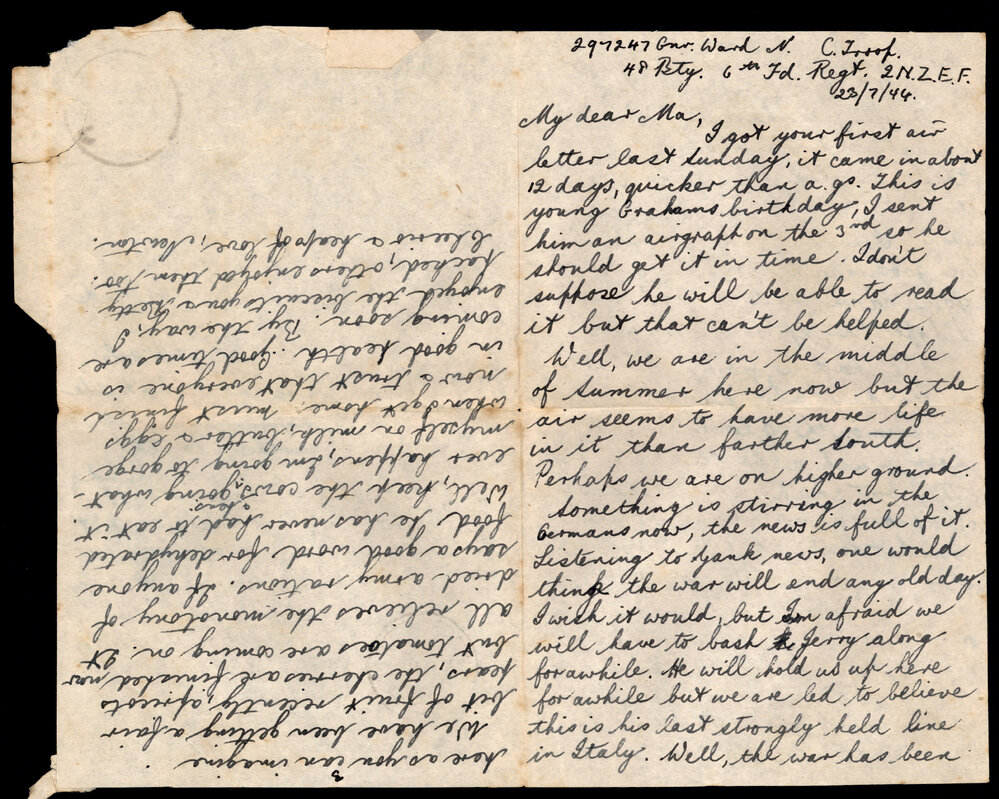 297247 Gnr. Ward N. C. Troop.
48 Bty. 6th Fd. Regt. 2 N.Z.E.F.
23/7/44.
My dear Ma,
I got your first air
letter last Sunday, it came in about
12 days, quicker than a.gs. This is
young Grahams birthday, I sent
him an airgraph on the 3rd so he
should get it in time. I don't
suppose he will be able to read
it but that can't be helped.
Well, we are in the middle
of summer here now but the
air seems to have more life
in it than farther south.
Perhaps we are on higher ground.
Something is stirring in the
Germans now, the news is full of it.
Listening to Yank news, one would
think the war will end any old day.
I wish it would, but Im afraid we
will have to bash Jerry along
for awhile. He will hold us up here
for awhile but we are led to believe
this is his last strongly held line
in Italy. Well, the war has been
3
here as you can imagine.
We have been getting a fair
bit of fruit recently, apricots
pears, the cherries are finished now
but tomatoes are coming on. It
all relieves the monotony of
dried army rations. If anyone
says a good word for dehydrated
food he has never had to eat it.
Well, keep the cows & hens going what-
ever happens, Im going to gorge
myself on milk, butter & eggs
when I get home. Must finish
now & trust that everyone is
in good health. Good times are
coming soon. By the way, I
enjoyed the biscuits you & Betty
packed, others enjoyed them too.
Cheerio & heaps of love, Newton.